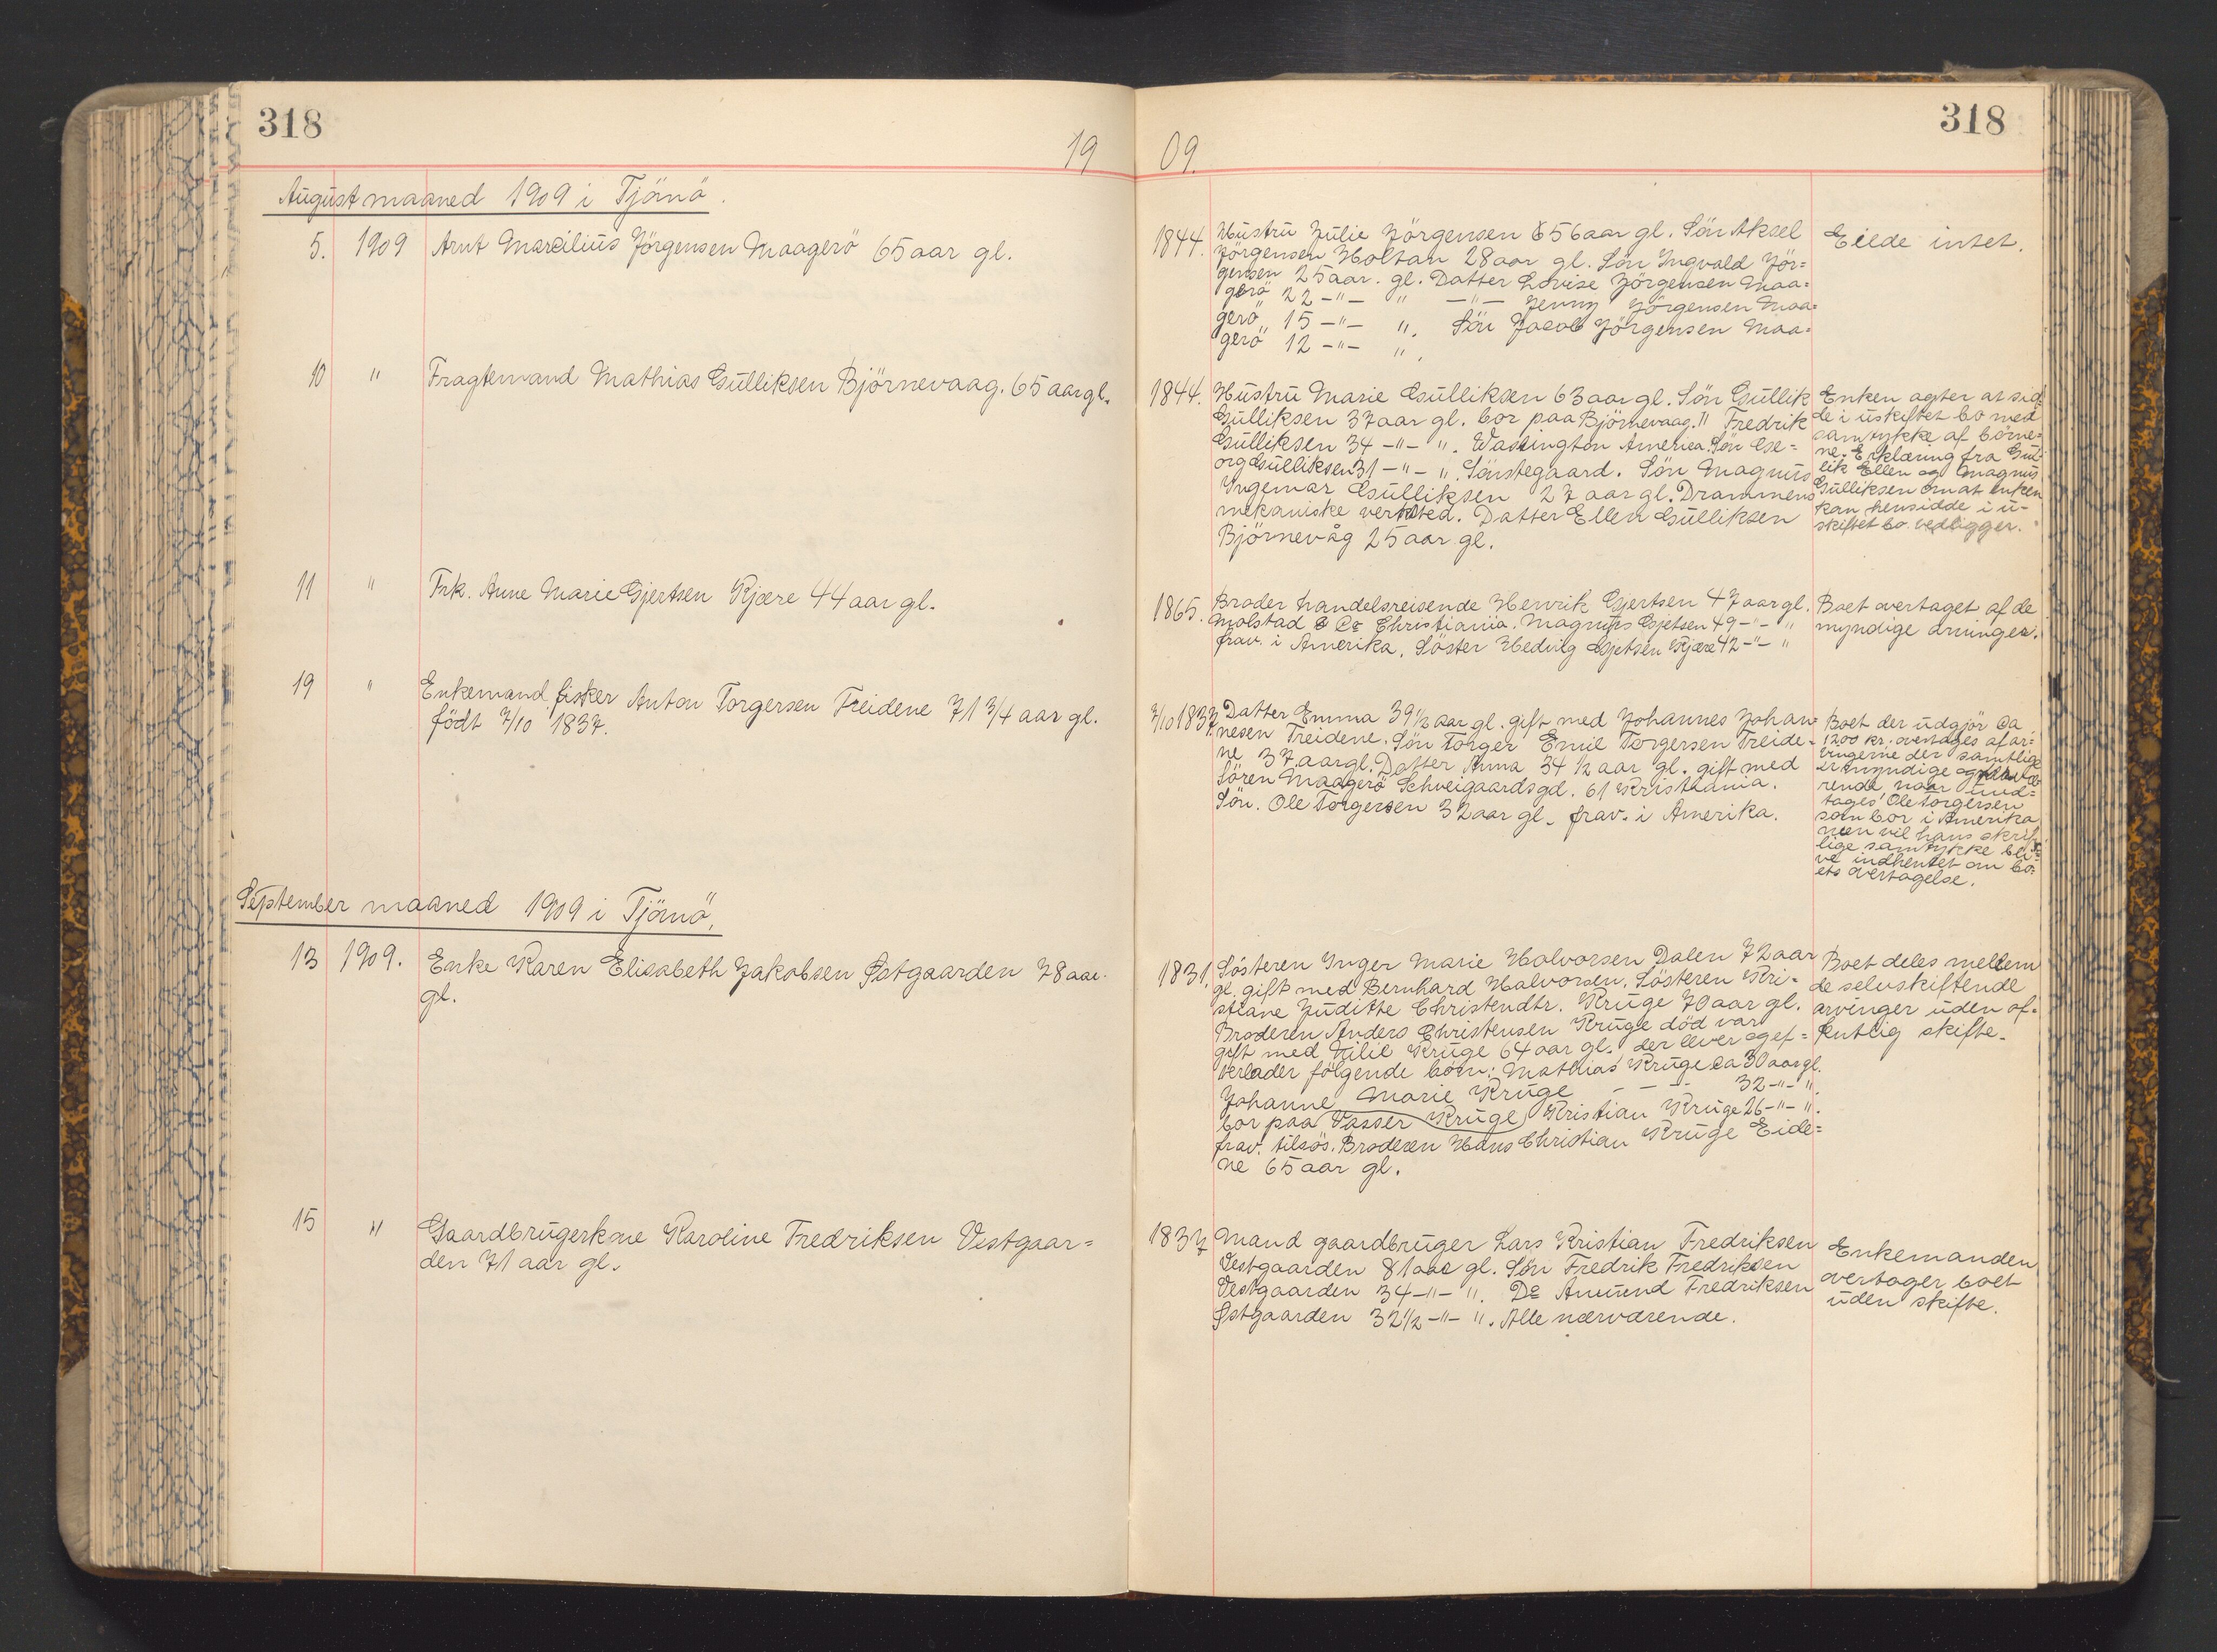 318
318
19 09.
August maaned 1909 i Tjömö.
5. 1909 Arnt Marcilius Jörgensen Maagerö 65 aar gl.
1844. Hustru Julie Jörgensen 56 aar gl. Sön Aksel
Jörgensen Holtan 28 aar gl. Sön Ingvald Jör=
gensen 25 aar. gl. Datter Lovise Jörgensen Maa=
gerö 22 -"- " -"- Jenny Jörgensen Maa=
gerö 15 -"- ". Sön Jacob Jörgensen Maa=
gerö 12 -"- ".
Eiede intet.
10 " Fragtemand Mathias Gulliksen Björnevaag. 65 aar gl.
1844. Hustru Marie Gulliksen 63 aar gl. Sön Gullik
Gulliksen 37 aar gl. bor paa Björnevaag. " Fredrik
Gulliksen 34 -"- ". Wasington America. Sön Ge=
org Gulliksen 31 -"- ". Sönstegaard. Sön Magnus
Ingemar Gulliksen 27 aar gl. Drammens
mekaniske verksted. Datter Ellen Gulliksen
Björnevåg 25 aar gl.
Enken agter at sid=
de i uskiftet bo med
samtykke af börne=
ne. Erklæring fra Gul=
lik Ellen og Magnus
Gulliksen om at enken
kan hensidde i u-
skiftet bo vedligger.
11 " Frk. Anne Marie Gjertsen Kjære 44 aar gl.
1865. Broder handelsreisende Henrik Gjertsen 47 aar gl.
Molstad & Co Christiania. Magnus Gjetsen 49 -"- "
frav. i Amerika. Söster Hedvig Gjetsen Kjære 42 -"- "
Boet overtaget af de
myndige arvinger.
19 " Enkemand fisker Anton Torgersen Treidene 71 3/4 aar gl.
födt 7/10 1837.
7/10 1837 Datter Emma 39 1/2 aar gl. gift med Johannes Johan=
nesen Treidene. Sön Torger Emil Torgersen Treide-
ne 37 aar gl. Datter Anna 34 1/2 aar gl. gift med
Sören Maagerö Schveigaardsgd. 61 Kristiania.
Sön. Ole Torgersen 32 aar gl. frav. i Amerika.
Boet der udgjör ca
1200 kr. overtages af ar=
vingerne der samtlige
er myndige og
rende naar und=
tages Ole Torgersen
som bor i Amerika
men vil hans skrift
lige samtykke bli=
ve indhentet om bo=
ets overtagelse.
September maaned 1909 i Tjömö.
13 1909. Enke Karen Elisabeth Jakobsen Østgaarden 78 aar
gl.
1831. Sösteren Inger Marie Halvorsen Dalen 72 aar
gl. gift med Bernhard Halvorsen. Sösteren Kri-
stiane Juditte Christendtr. Kruge 70 aar gl.
Broderen Anders Christensen Kruge död var
gift med Julie Kruge 64 aar gl. der lever og ef=
terlader fölgende börn: Mathias Kruge ca 30 aar gl.
Johanne Marie Kruge - - - 32 -"- "
bor paa Vasser Kruge Kristian Kruge 26 -"- ".
frav. tilsös. Broderen Hans Christian Kruge Eide=
ne 65 aar gl.
Boet deles mellem
de selvskiftende
arvinger uden of-
fentlig skifte.
15 " Gaardbrugerkone Karoline Fredriksen Vestgaar=
den 71 aar gl.
1837 Mand gaardbruger Lars Kristian Fredriksen
Vestgaarden 81 aar gl. Sön Fredrik Fredriksen
Vestgaarden 34 -"- ". Do Amund Fredriksen
Østgaarden 32 1/2 -"- ". Alle nærværende.
Enkemanden
overtager boet
uden skifte.